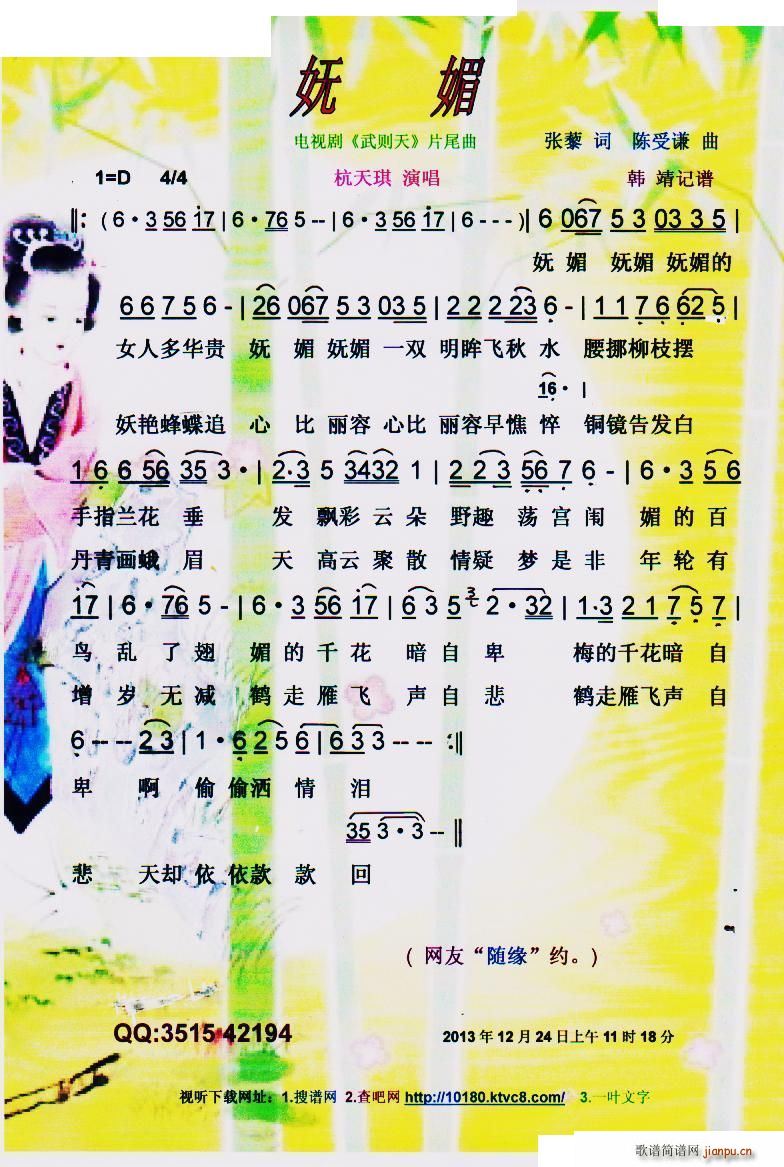 妩 媚
电视剧《武则天》片尾曲 张藜 词 陈受谦 曲
1=D 4/4 杭天琪 演唱 韩 靖记谱
‖: ( 6· 3 56 i7 | 6· 76 5 -- | 6· 3 56 i7 | 6 - - - ) | 6 067 5 3 03 3 5 |
妩 媚 妩媚 妩媚的
6 6 7 5 6 - | 26 067 5 3 03 5 | 2 2 2 23 6 - | 1 1 7 6 62 5 |
女人多华贵 妩 媚 妩媚 一双 明眸飞秋 水 腰挪柳枝摆
16· |
妖艳蜂蝶追 心 比 丽容 心比 丽容早憔 悴 铜镜告发白
1 6 6 56 35 3· | 2·3 5 3432 1 | 2 2 3 56 7 6 - | 6· 3 5 6
手指兰花 垂 发 飘彩 云 朵 野趣 荡宫 闱 媚 的 百
丹青画蛾 眉 天 高云 聚 散 情疑 梦 是 非 年 轮 有
i7 | 6· 76 5 - | 6· 3 56 i7 | 6 3 5 2· 32 | 1·3 2 1 7 5 7 |
鸟 乱 了 翅 媚 的 千 花 暗 自 卑 梅的千花暗 自
增 岁 无 减 鹤 走 雁 飞 声 自 悲 鹤走雁飞声 自
6 -- -- 2 3 | 1· 6 2 5 6 | 6 3 3 -- -- :‖
卑 啊 偷 偷洒 情 泪
35 3·3 -- ‖
悲 天却 依 依款 款 回
( 网友“随缘”约。)
QQ:3515 42194 2013 年 12 月 24 日上午 11 时 18 分
视听下载网址：1.搜谱网 2.查吧网 http://10180.ktvc8.com/ 3.一叶文字
歌谱简谱网 jianpu.cn